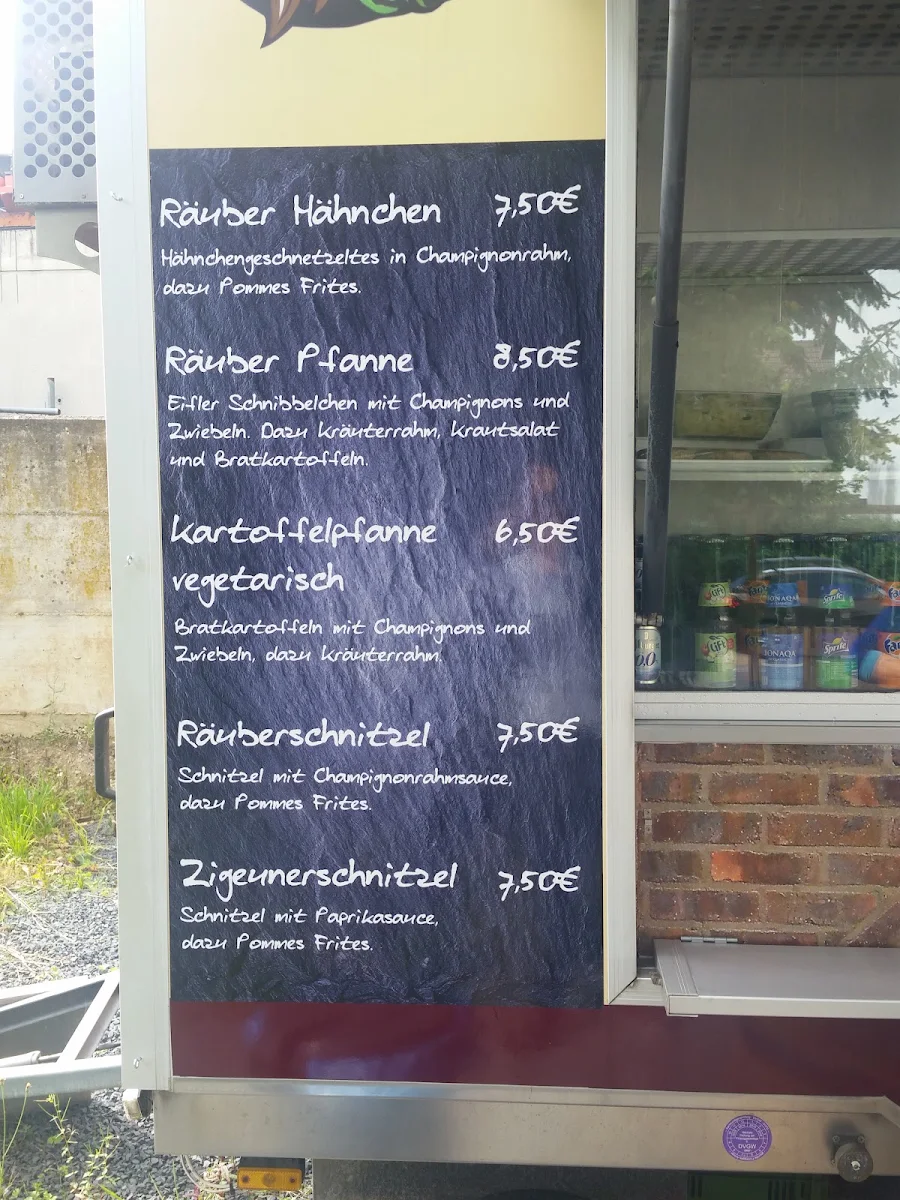 Räuber Hähnchen 7,50€
Hähnchengeschnetzeltes in Champignonrahm,
dazu Pommes Frites.
Räuber Pfanne 8,50€
Eifler Schnibbelchen mit Champignons und
Zwiebeln. Dazu Kräuterrahm, Krautsalat
und Bratkartoffeln.
Kartoffelpfanne 6,50€
vegetarisch
Bratkartoffeln mit Champignons und
Zwiebeln, dazu Kräuterrahm.
Räuberschnitzel 7,50€
Schnitzel mit Champignonrahmsauce,
dazu Pommes Frites.
Zigeunerschnitzel 7,50€
Schnitzel mit Paprikasauce,
dazu Pommes Frites.
Sprite
Sprite
0,0
DVGW